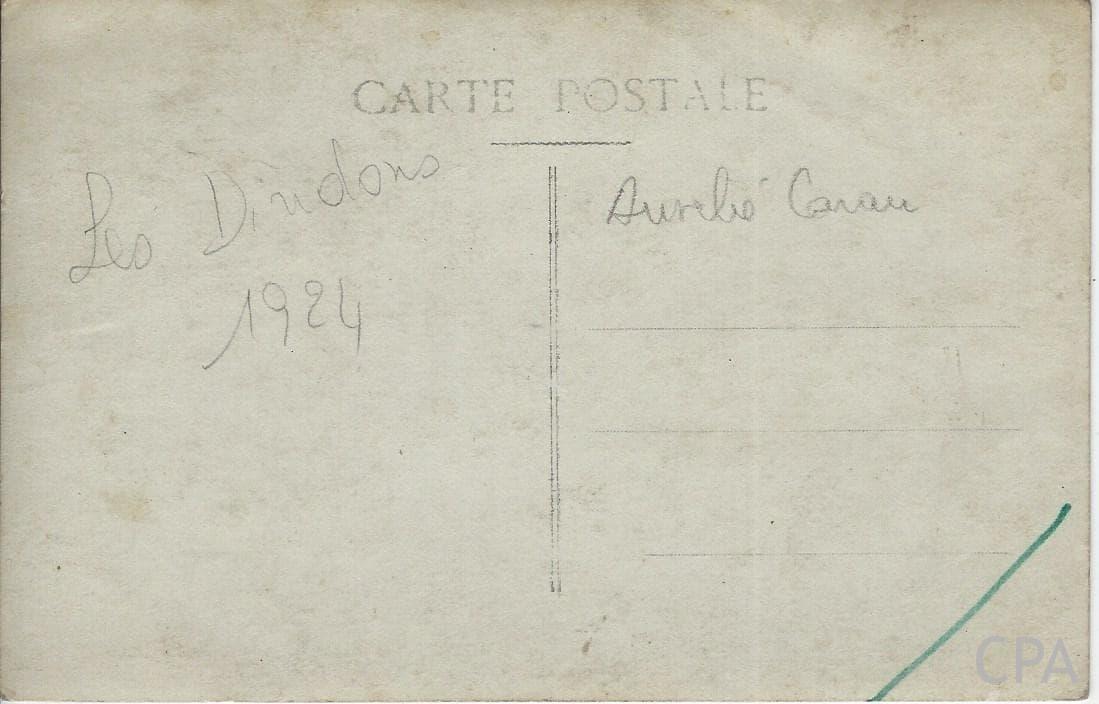 CARTE POSTALE
Les Dindons
1924
Aurelie
CPA